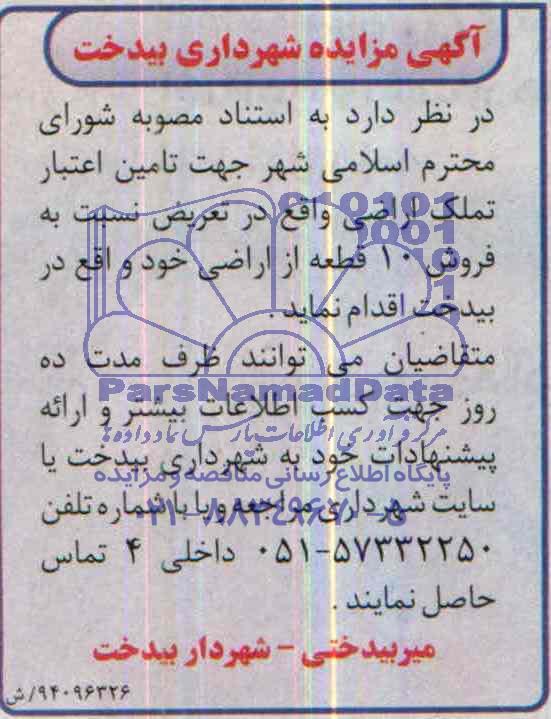 آگهی مزایده شهرداری بیدخت
در نظر دارد به استناد مصوبه شورای
محترم اسلامی شهر جهت تامین اعتبار
تملک اراضی واقع در تعریض نسبت به
فروش ۱۰ قطعه از اراضی خود واقع در
بیدخت اقدام نماید.
متقاضیان می توانند ظرف مدت ده
ParsNamadData
روز جهت کسب اطلاعات بیشتر و ارائه
مرکز فرآوری اطلاعات پارس نماد داده ها
پیشنهادات خود به شهرداری بیدخت یا
پایگاه اطلاع رسانی مناقصه و مزایده
سایت شهرداری مراجعه و یا با شماره تلفن
۰۲۱-۸۸۳۴۹۶۷۰-۵
۰۵۱-۵۷۳۳۲۲۵۰ داخلی ۴ تماس
حاصل نمایند.
میربیدختی - شهردار بیدخت
۹۴۰۹۶۳۲۶/ش